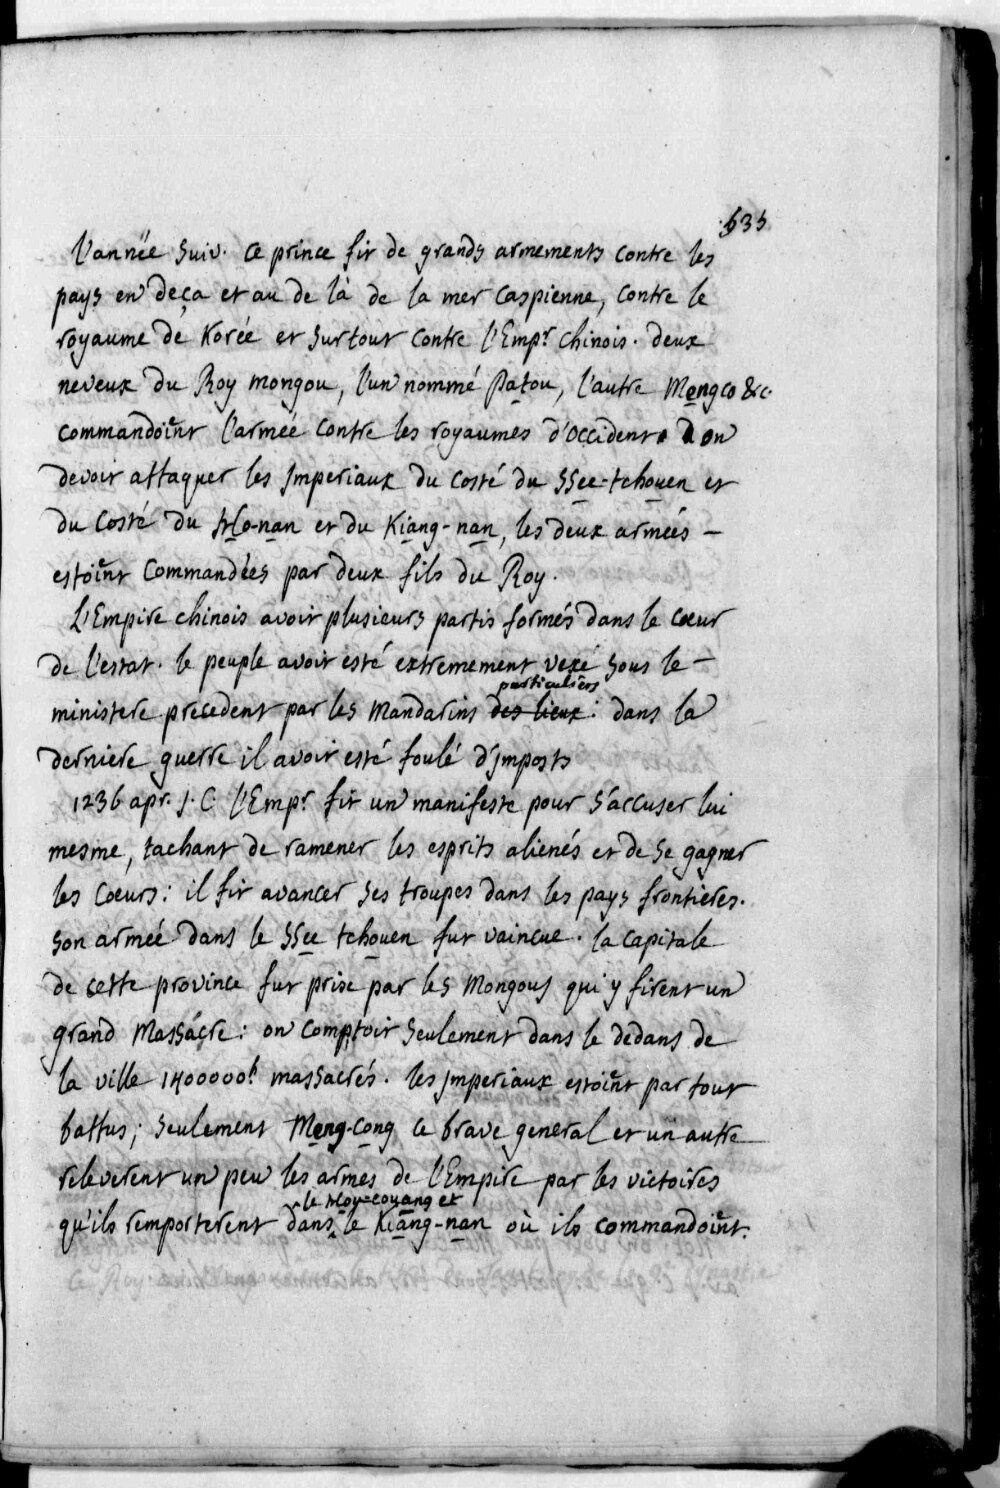 635
l'année suiv. ce prince fit de grands armements contre les
pays en deça et au de là de la mer caspienne, contre le
royaume de Korée et surtout contre l'Empr chinois. deux
neveux du Roy mongou, l'un nommé Patou, l'autre Mengco &c.
commandoint l'armée contre les royaumes d'occident. on
devoit attaquer les jmperiaux du costé du Ssee-tchouen et
du costé du Ho-nan et du Kiang-nan, les deux armées -
estoint commandées par deux fils du Roy.
L'Empire chinois avoit plusieurs partis formés dans le cœur
de l'estat. le peuple avoit esté extremement vexé sous le -
ministere precedent par les mandarins des lieux particuliers : dans la
derniere guerre il avoit esté foulé d'jmposts
1236 apr. J.C. l'Empr fit un manifeste pour s'accuser lui
mesme, tachant de ramener les esprits alienés et de se gagner
les coeurs : il fit avancer ses troupes dans les pays frontieres.
son armée dans le Ssee tchouen fut vaincue. la capitale
de cette province fut prise par les Mongous qui y firent un
grand massacre : on comptoit seulement dans le dedans de
la ville 1400000h massacrés. les jmperiaux estoint par tout
battus ; seulement Meng-cong ce brave general et un autre
releverent un peu les armes de l'Empire par les victoires
qu'ils remporterent dans le Hou-couang et le Kiang-nan où ils commandoint.